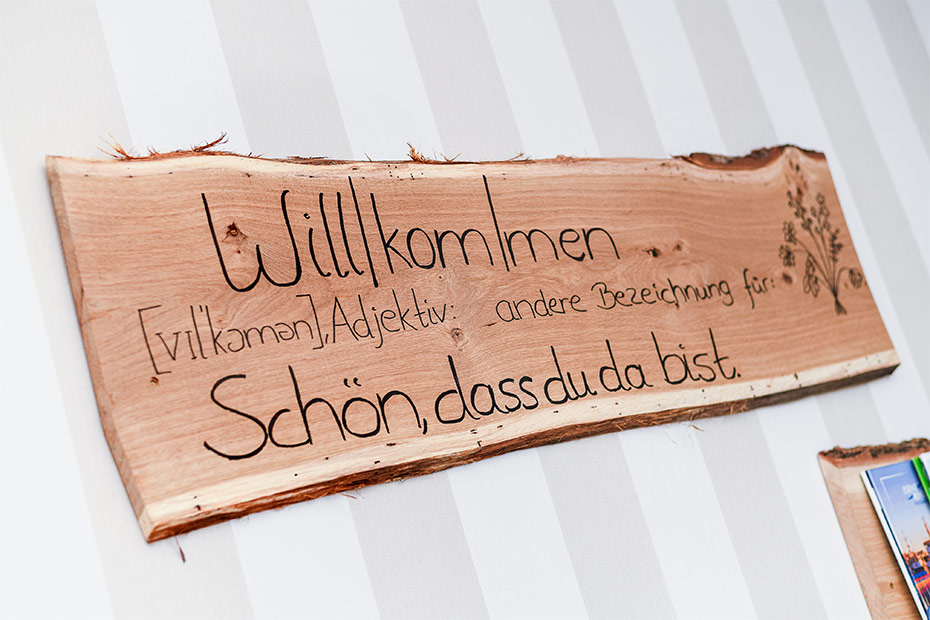 Will|kom|men
[vɪl'kɔmən], Adjektiv: andere Bezeichnung für:
Schön, dass du da bist.